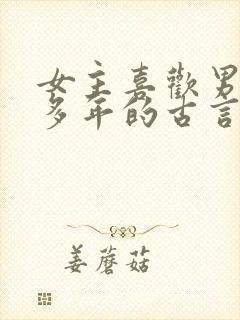 女主喜歡男
多年的古言
姜蘑菇